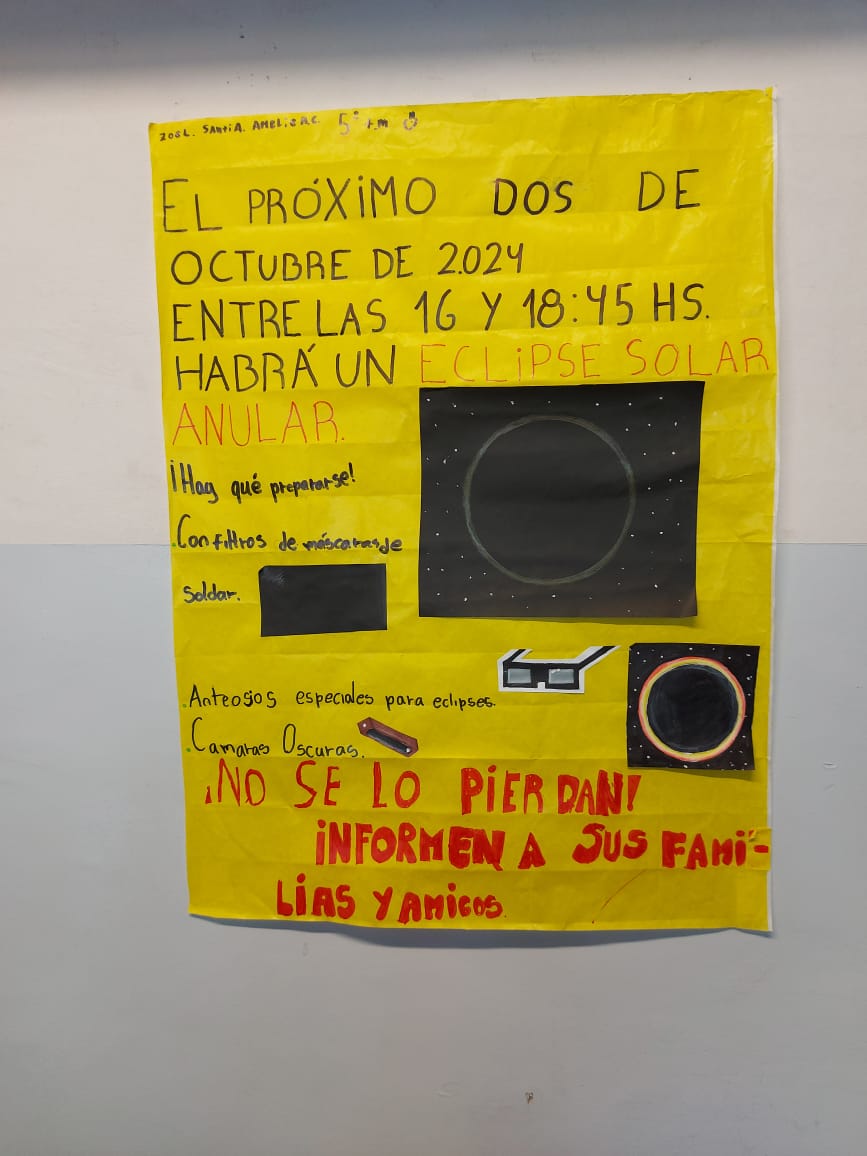 ZOE L. SANTI A. AMELIE A.C. 5°
EL PRÓXIMO DOS DE
OCTUBRE DE 2.024
ENTRE LAS 16 Y 18:45 HS.
HABRÁ UN ECLIPSE SOLAR
ANULAR.
¡Hay qué prepararse!
.Con filtros de máscaras de
soldar.
.Anteojos especiales para eclipses.
.Camaras Oscuras.
¡NO SE LO PIERDAN!
INFORMEN A SUS FAMI-
LIAS Y AMIGOS.